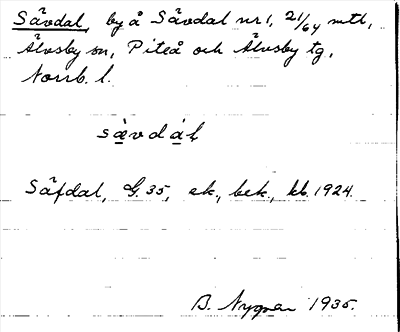 Sävdal, by å Sävdal nr 1, 21/64 mtl,
Älvsby sn, Piteå och Älvsby tg,
Norrb. l.
sævdáḷ
Säfdal, G. 35, ek., bek., kb. 1924.
B. Nygren 1935.